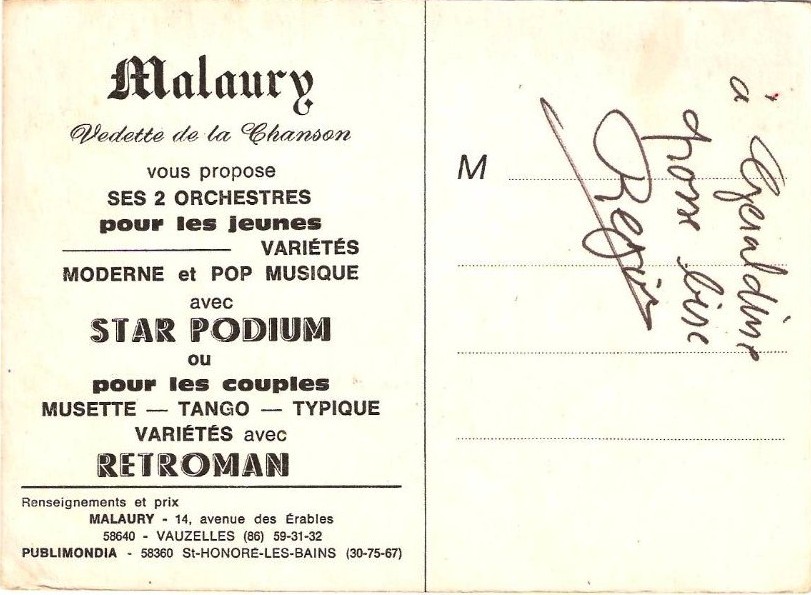 Malaury
Vedette de la Chanson
vous propose
SES 2 ORCHESTRES
pour les jeunes
VARIÉTÉS
MODERNE et POP MUSIQUE
avec
STAR PODIUM
ou
pour les couples
MUSETTE — TANGO — TYPIQUE
VARIÉTÉS avec
RETROMAN
Renseignements et prix
MALAURY - 14, avenue des Érables
58640 - VAUZELLES (86) 59-31-32
PUBLIMONDIA - 58360 St-HONORÉ-LES-BAINS (30-75-67)
M
à Geraldine
grosse bise
Regis